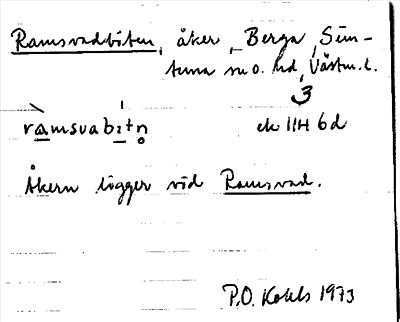 Ramsvadbiten, åker, Berga, Sim-
tuna sn o. hd, Västm.l.
3
ràmsvabɪtn̥
ek 11H 6d
Åkern ligger vid Ramsvad.
P.O. Kols 1973